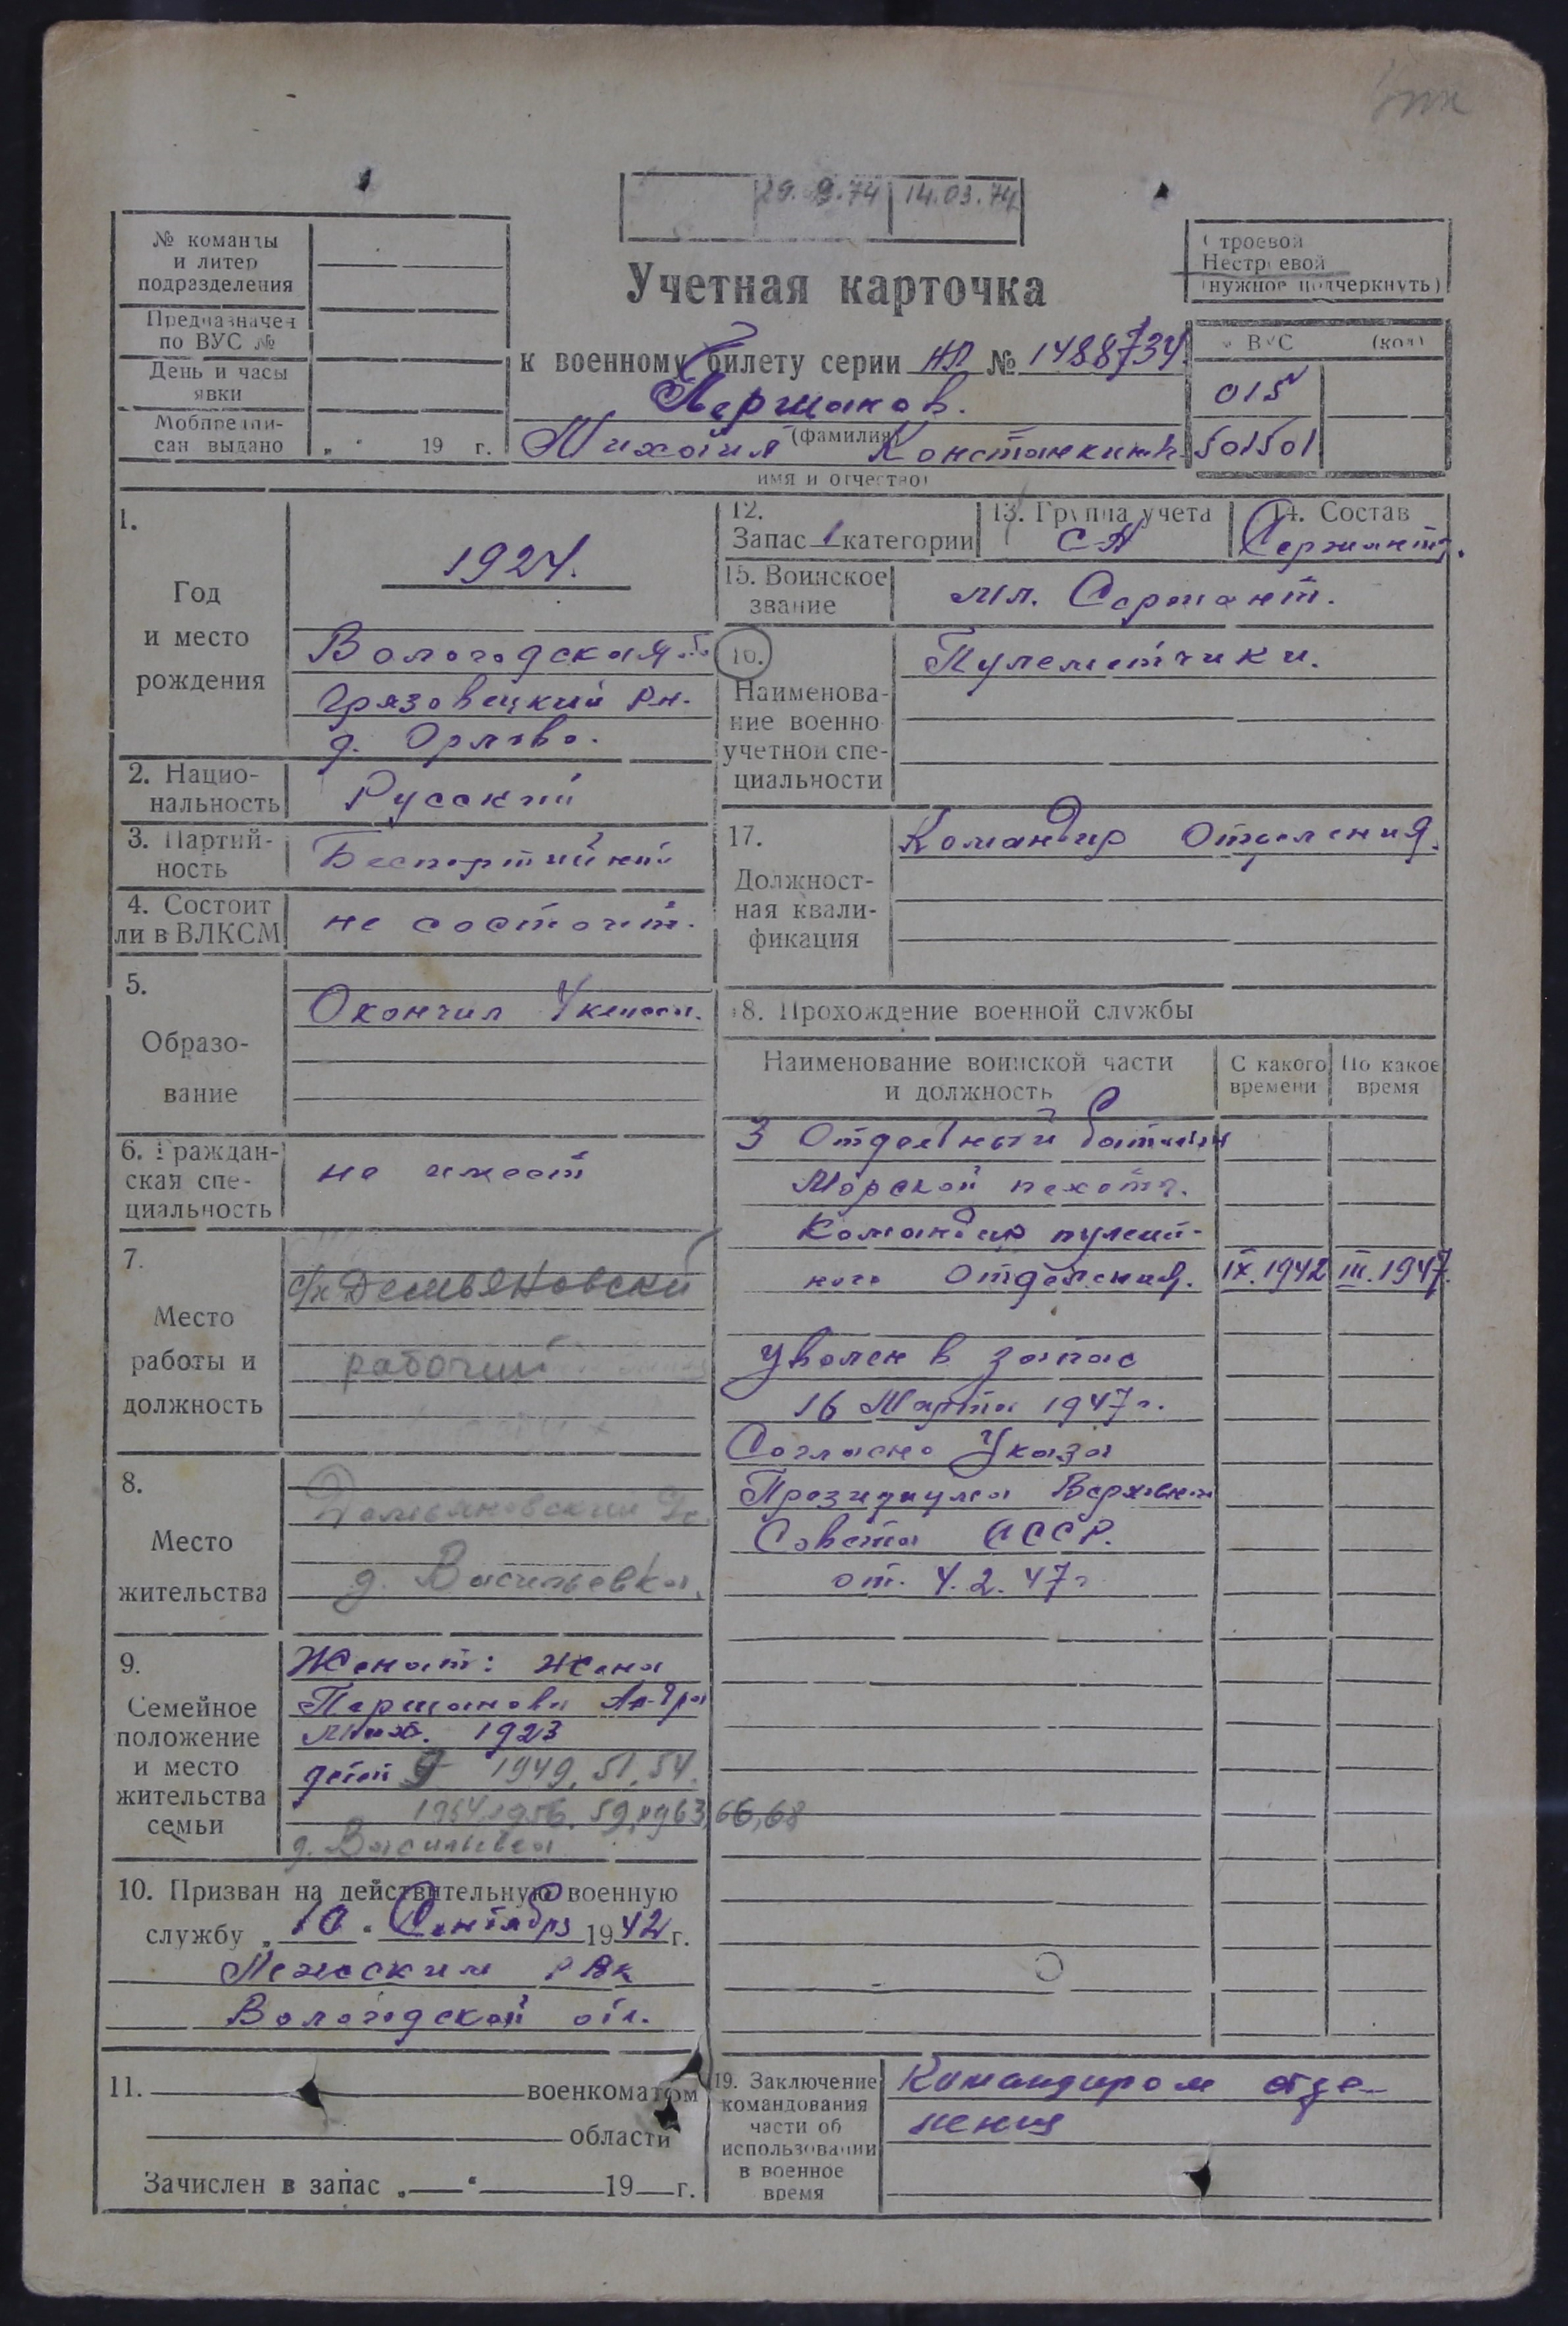 29. 9.74 14.03.74
№ команды
и литер
подразделения
Предназначен
по ВУС №
День и часы
явки
Мобпредпи-
сан выдано „ “ 19 г.
Строевой
Нестроевой
(нужное подчеркнуть)
Учетная карточка
к военному билету серии НП № 1488734
Першаков.
(фамилия)
Михаил Константинов.
имя и отчество)
№ ВУС (код)
015
501501
1.
Год
и место
рождения
1924.
Вологодская об.
Грязовецкий рн.
д. Орлово.
2. Нацио-
нальность
Русский
3. Партий-
ность
Беспартийный
4. Состоит
ли в ВЛКСМ
не состоит.
5.
Образо-
вание
Окончил 4 класса.
6. Граждан-
ская спе-
циальность
не имеет
7.
Место
работы и
должность
с/х Демьяновский
рабочий
8.
Место
жительства
Демьяновский
д. Васильевка.
9.
Семейное
положение
и место
жительства
семьи
Женат: жена
Першакова Ал-дра
Мих. 1923
дети 9 1949, 51, 54.
1954, 1956, 59, 1963, 66, 68
д. Васильевка
10. Призван на действительную военную
службу „10“ Сентября 1942 г.
Лежским РВК
Вологодской обл.
11. военкоматом
области
Зачислен в запас „ “ 19 г.
12.
Запас 1 категории
13. Группа учета
СА
14. Состав
Сержант.
15. Воинское
звание
мл. Сержант.
16.
Наименова-
ние военно
учетной спе-
циальности
Пулеметчики.
17.
Должност-
ная квали-
фикация
Командир Отделения.
18. Прохождение военной службы
Наименование воинской части
и должность
С какого
времени
По какое
время
3 Отдельный батальон
Морской пехоты.
Командир пулемёт-
ного Отделения. IX.1942 III.1947.
Уволен в запас
16 Марта 1947 г.
Согласно Указа
Президиума Верховного
Совета СССР.
от. 4.2.47 г
19. Заключение
командования
части об
использовании
в военное
время
Командиром отде-
ления